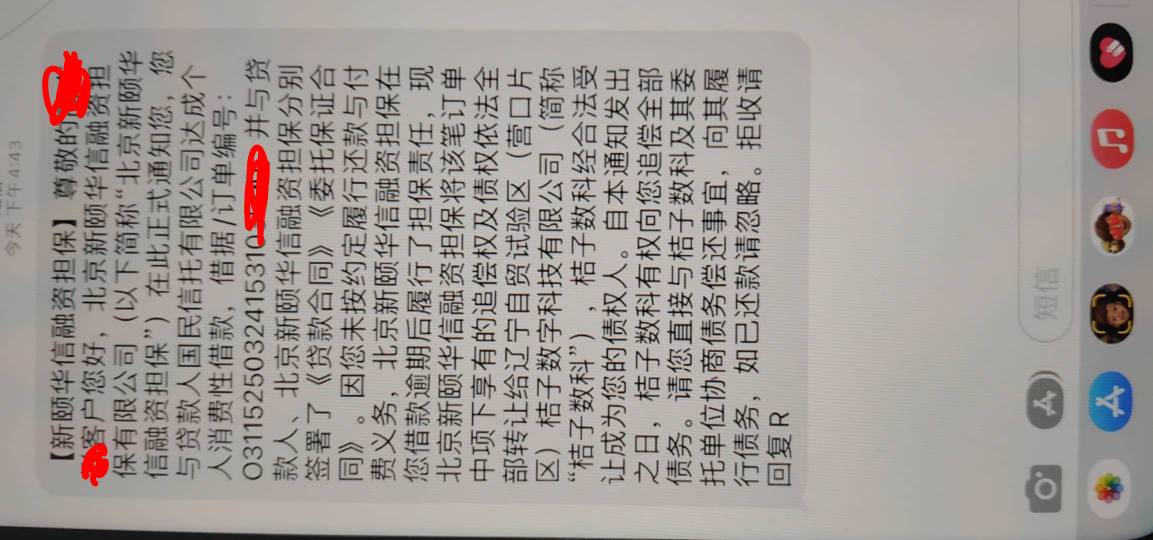 今天 下午4:43
【新颐华信融资担保】尊敬的
客户您好，北京新颐华信融资担
保有限公司（以下简称“北京新颐华
信融资担保”）在此正式通知您，您
与贷款人国民信托有限公司达成个
人消费性借款，借据/订单编号：
O31152503241531O 并与贷
款人、北京新颐华信融资担保分别
签署了《贷款合同》《委托保证合
同》。因您未按约定履行还款与付
费义务，北京新颐华信融资担保在
您借款逾期后履行了担保责任，现
北京新颐华信融资担保将该笔订单
中项下享有的追偿权及债权依法全
部转让给辽宁自贸试验区（营口片
区）桔子数字科技有限公司（简称
“桔子数科”），桔子数科经合法受
让成为您的债权人。自本通知发出
之日，桔子数科有权向您追偿全部
债务。请您直接与桔子数科及其委
托单位协商债务偿还事宜，向其履
行债务，如已还款请忽略。拒收请
回复R
短信